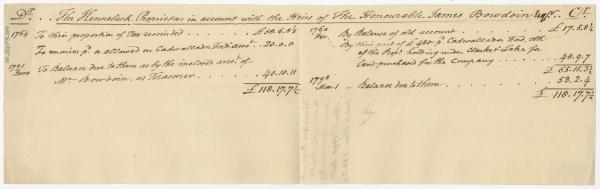 Dr. . . The Kennebeck Proprietors in account with the Heirs of The Honourable James Bowdoin Esqr. . . Cr.
1764 To their proportion of Tax rescinded . . . . . . £58.6.8½
To monies pd. on allowed on Cadwallader Ford acct. . 20.0.0
1791
June To Balance due to them as by the inclosed accot. of
Mr. Bowdoin, as Treasurer . . . . . . 40.10.11
£118.17.7½
1760
Dec. By Balance of old account . . . . . . £17.5.8½
By their part of £480 pd. Cadwallader Ford, &ca
of the Propr. holding under Clarke & Lake for
Land purchased for the Company . . . . . 48.9.7
£65.15.3½
1798
Mar 1 „ Balance due to them . . . . . . 53.2.4
£118.17.7½